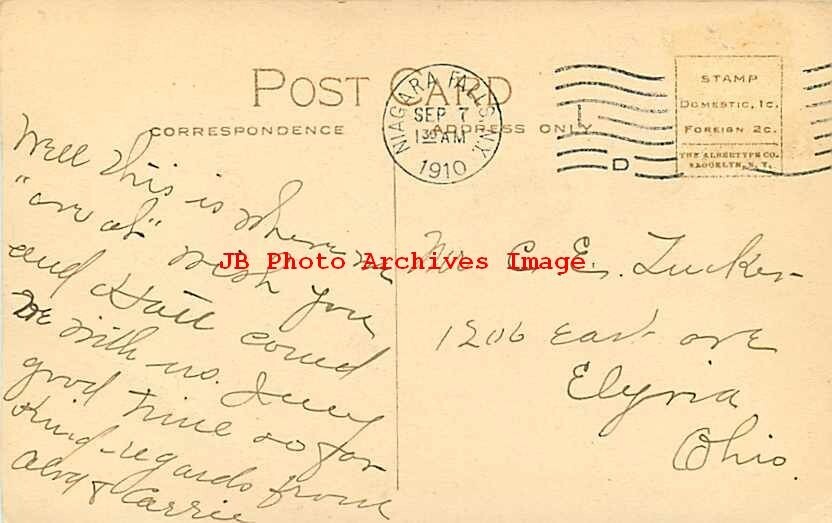 POST CARD
CORRESPONDENCE
ADDRESS ONLY
NIAGARA FALLS N.Y.
SEP 7
1 30 AM
1910
L
D
STAMP
DOMESTIC, 1c.
FOREIGN 2c.
THE ALBERTYPE CO.
BROOKLYN, N. Y.
Well this is where we
"are at" wish you
and Hatt could
be with us.
good time so for
Kind-regards from
Alva & Carrie
JB Photo Archives Image
Mr C. E. Tucker
1206 East ave
Elyria
Ohio.